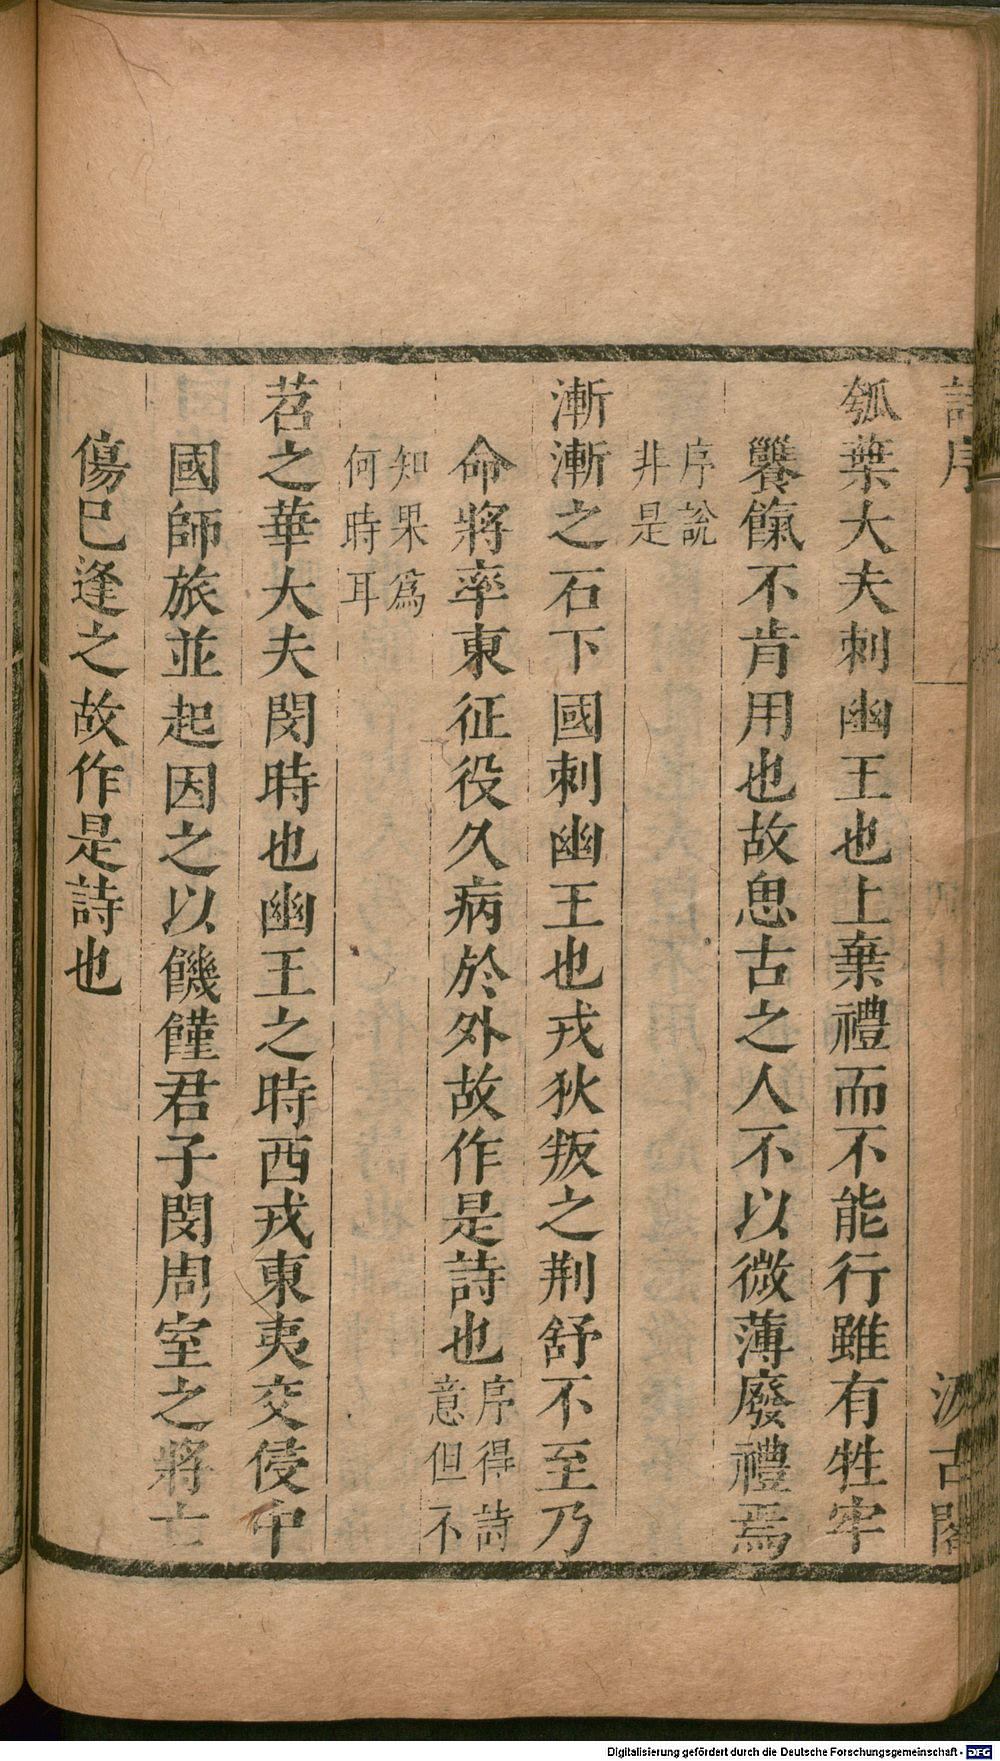 詩序
汲古閣
瓠葉大夫刺幽王也上棄禮而不能行雖有牲牢
饔餼不肯用也故思古之人不以微薄廢禮焉
序說
非是
漸漸之石下國刺幽王也戎狄叛之荆舒不至乃
命將率東征役久病於外故作是詩也
序得詩
意但不
知果爲
何時耳
苕之華大夫閔時也幽王之時西戎東夷交侵中
國師旅並起因之以饑饉君子閔周室之將亡
傷已逢之故作是詩也
Digitalisierung gefördert durch die Deutsche Forschungsgemeinschaft - DFG